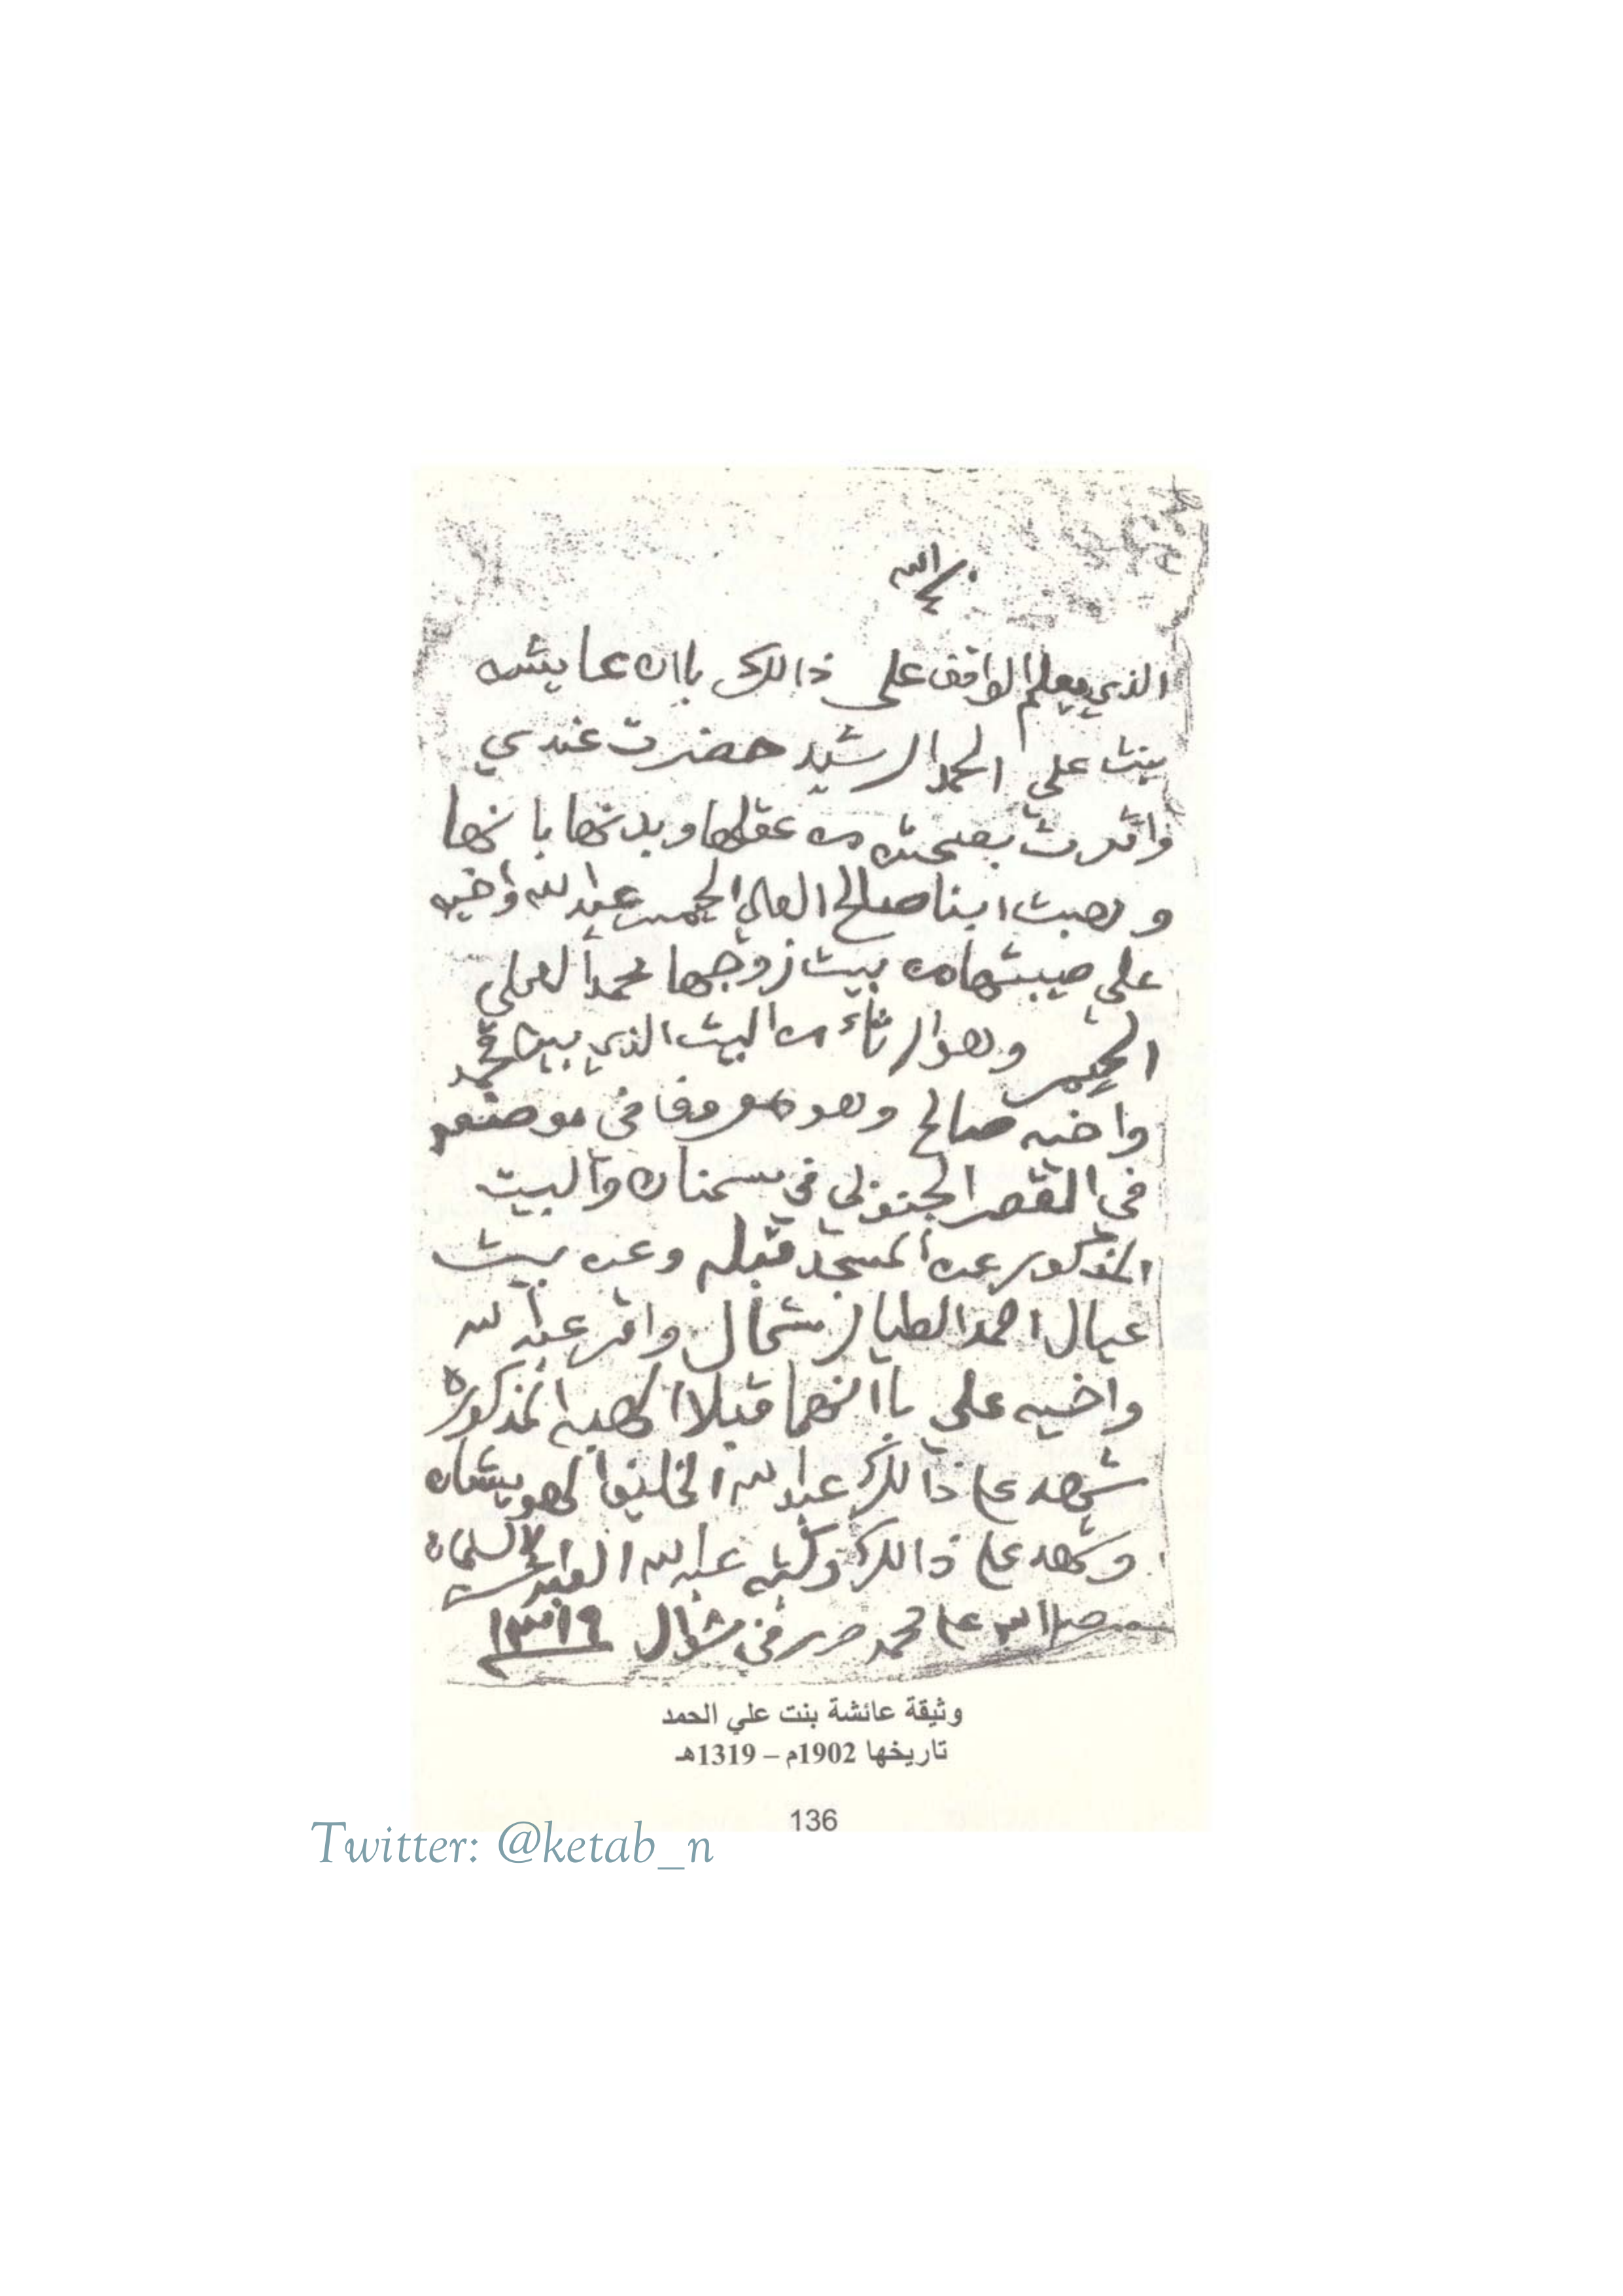 الله
الذي يعلم الواقف على ذالك باان عايشه
بنت علي الحمد الرشيد حضرت عندي
واقرت بصحت من عقلها وبدنها بانها
وهبت ابنا صالح العلي عبدالله واخيه
علي صيبتها من بيت زوجها محمد العلي
وهو ارثاء من البيت الذي بين محمد
واخيه صالح وهو معروفا في موضعه
في القصر الجنوبي في سمنان والبيت
المذكور عن المسجد قبله وعن بيت
عيال احمد الطيار شمال واقر عبدالله
واخيه علي باانهما قبلا الهبه المذكوره
شهد على ذالك عبدالله الخليفا
وشهد على ذالك وكتبه عبدالله السلمان
محمد في شوال ١٣١٩
وثيقة عائشة بنت علي الحمد
تاريخها 1902م – 1319هـ
136
Twitter: @ketab_n